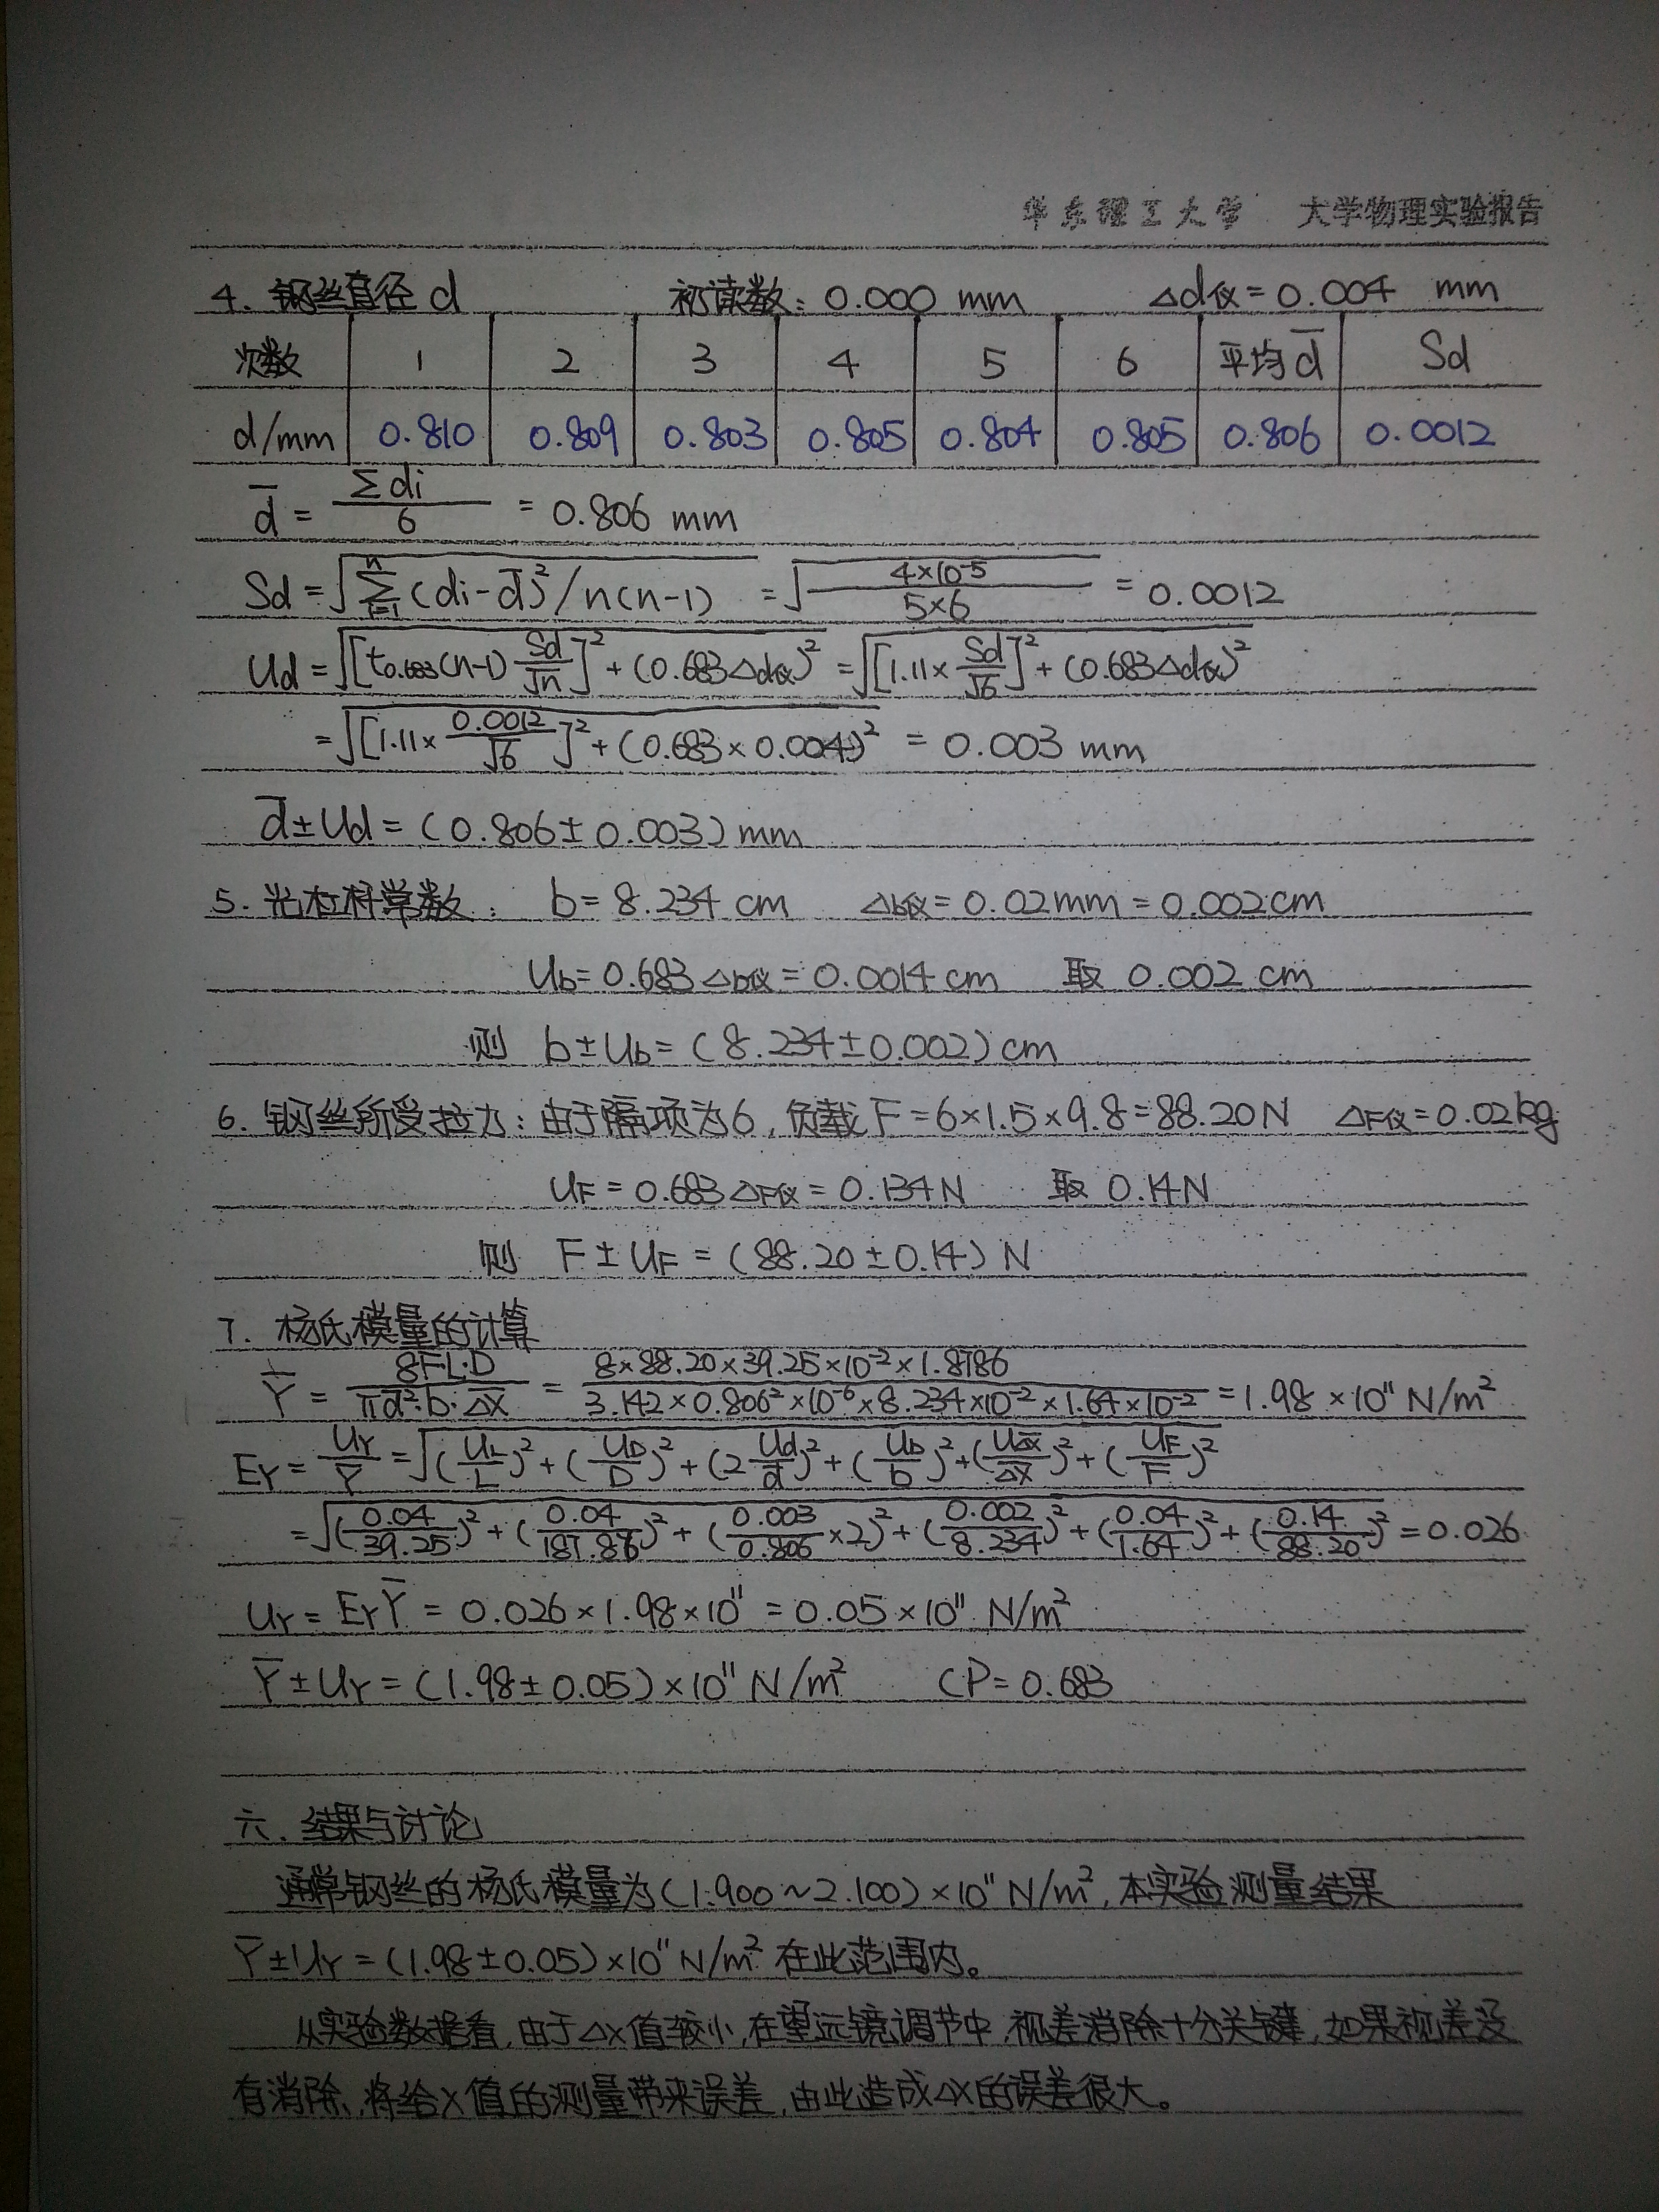 华东理工大学 大学物理实验报告
4. 钢丝直径 d 初读数: 0.000 mm Δd仪=0.004 mm
次数 1 2 3 4 5 6 平均d̅ Sd
d/mm 0.810 0.809 0.803 0.805 0.804 0.805 0.806 0.0012
d̅ = Σdi/6 = 0.806 mm
Sd = √(Σ(i=1→n)(di-d̅)²/n(n-1)) = √(4×10⁻⁵/(5×6)) = 0.0012
Ud = √([t0.683(n-1) Sd/√n]²+(0.683Δd仪)²) = √([1.11×Sd/√6]²+(0.683Δd仪)²)
= √([1.11×0.0012/√6]²+(0.683×0.004)²) = 0.003 mm
d̅±Ud = (0.806±0.003) mm
5. 光杠杆常数: b= 8.234 cm Δb仪=0.02mm=0.002cm
Ub=0.683Δb仪=0.0014cm 取 0.002 cm
则 b±Ub=(8.234±0.002)cm
6. 钢丝所受拉力: 由于隔项为6, 负载F=6×1.5×9.8=88.20N ΔF仪=0.02kg
UF=0.683ΔF仪=0.134N 取 0.14N
则 F±UF=(88.20±0.14)N
7. 杨氏模量的计算
Y̅ = 8FL·D/(πd̅²·b·Δx̅) = (8×88.20×39.25×10⁻²×1.8786)/(3.142×0.806²×10⁻⁶×8.234×10⁻²×1.64×10⁻²) = 1.98×10¹¹N/m²
EY = UY/Y̅ = √((UL/L)²+(UD/D)²+(2Ud/d̅)²+(Ub/b)²+(UΔx̅/Δx̅)²+(UF/F)²)
= √((0.04/39.25)²+(0.04/187.86)²+(0.003/0.806×2)²+(0.002/8.234)²+(0.04/1.64)²+(0.14/88.20)²) = 0.026
UY=EYY̅=0.026×1.98×10¹¹=0.05×10¹¹N/m²
Y̅±UY=(1.98±0.05)×10¹¹N/m² (P=0.683
六. 结果与讨论
通常钢丝的杨氏模量为(1.900~2.100)×10¹¹N/m², 本实验测量结果
Y̅±UY=(1.98±0.05)×10¹¹N/m²在此范围内。
从实验数据看, 由于Δx值较小, 在望远镜调节中, 视差消除十分关键, 如果视差没
有消除, 将给x值的测量带来误差, 由此造成Δx的误差很大。